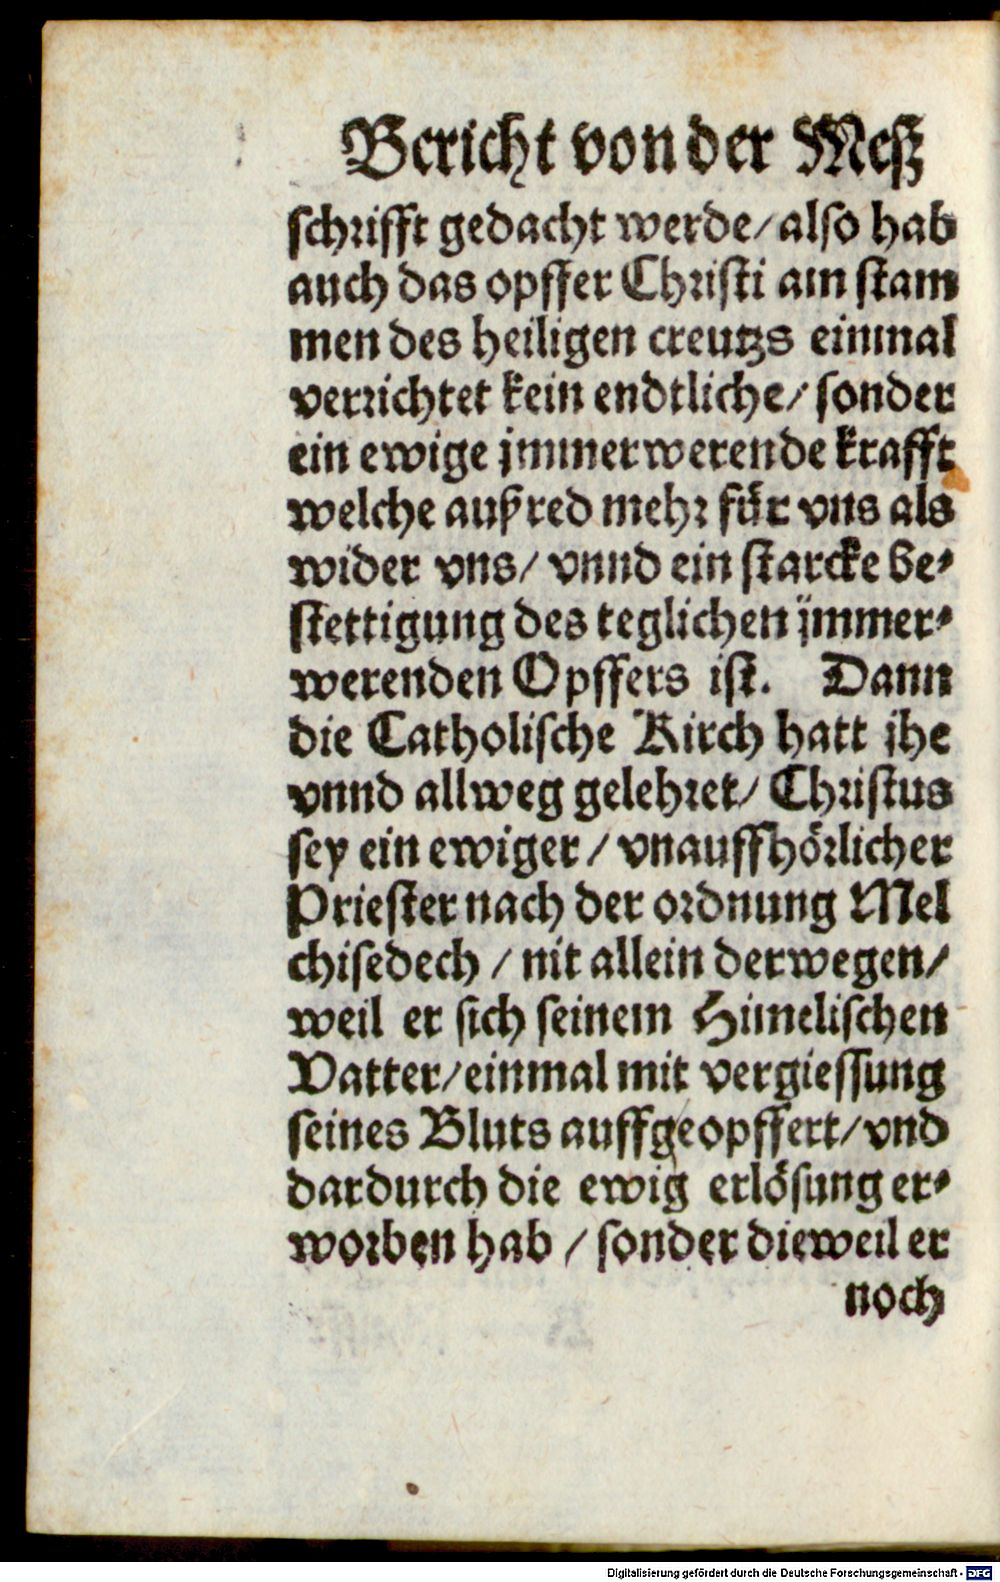 Bericht von der Meß
schrifft gedacht werde/ also hab
auch das opffer Christi am stam
men des heiligen creutzs einmal
verrichtet kein endtliche/ sonder
ein ewige jmmerwerende krafft
welche außred mehr für vns als
wider vns/ vnnd ein starcke be-
stettigung des teglichen jmmer-
werenden Opffers ist. Dann
die Catholische Kirch hatt jhe
vnnd allweg gelehret/ Christus
sey ein ewiger / vnauffhörlicher
Priester nach der ordnung Mel
chisedech / nit allein derwegen/
weil er sich seinem Himelischen
Vatter/ einmal mit vergiessung
seines Bluts auffgeopffert/ vnd
dardurch die ewig erlösung er-
worben hab / sonder dieweil er
noch
Digitalisierung gefördert durch die Deutsche Forschungsgemeinschaft - DFG